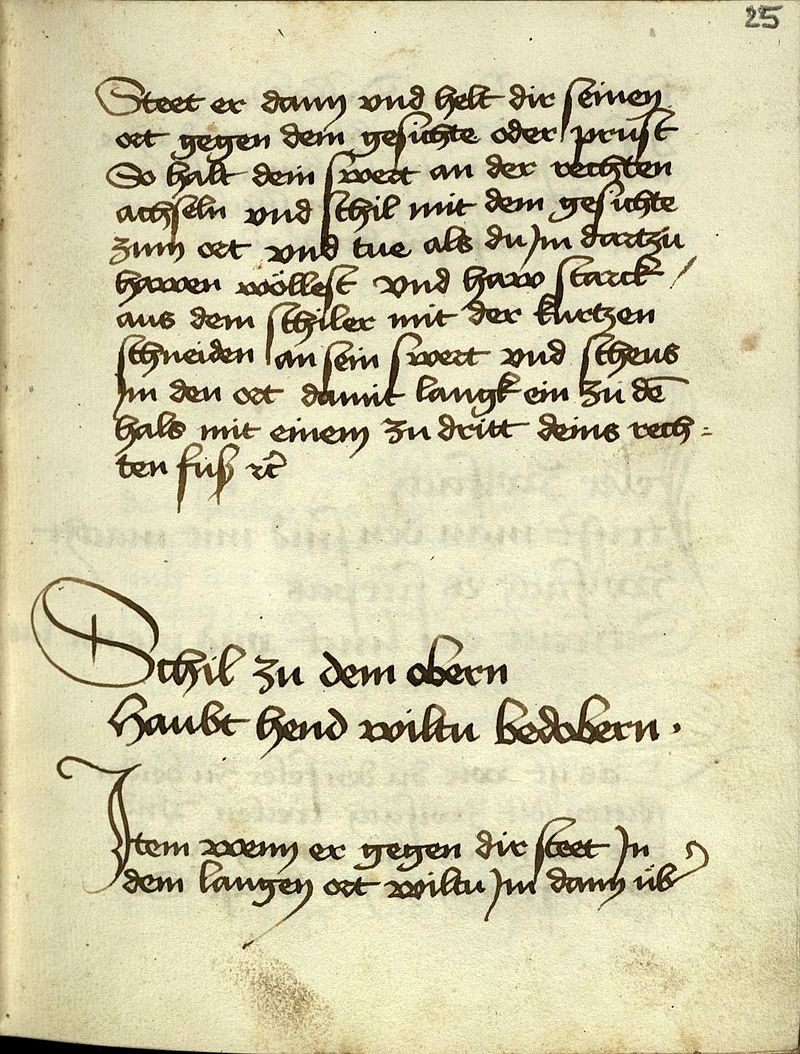 25
Steet er dann vnd helt dir seinen
ort gegen dem gesichte oder prust
So halt dein swert an der rechten
achseln vnd schil mit dem gesichte
zum ort vnd tue als du Jm dartzu
hawen wöllest vnd haw starck /
aus dem schiler mit der kurtzen
schneiden an sein swert vnd scheus
Jm den ort damit langk ein zu dē
hals mit einem zu dritt deins rech=
ten fuß rc̄
Schil zu dem obern
haubt hend wiltu bedobern .
Jtem wenn er gegen dir steet Jn
dem langen ort wiltu Jm dann üb̉